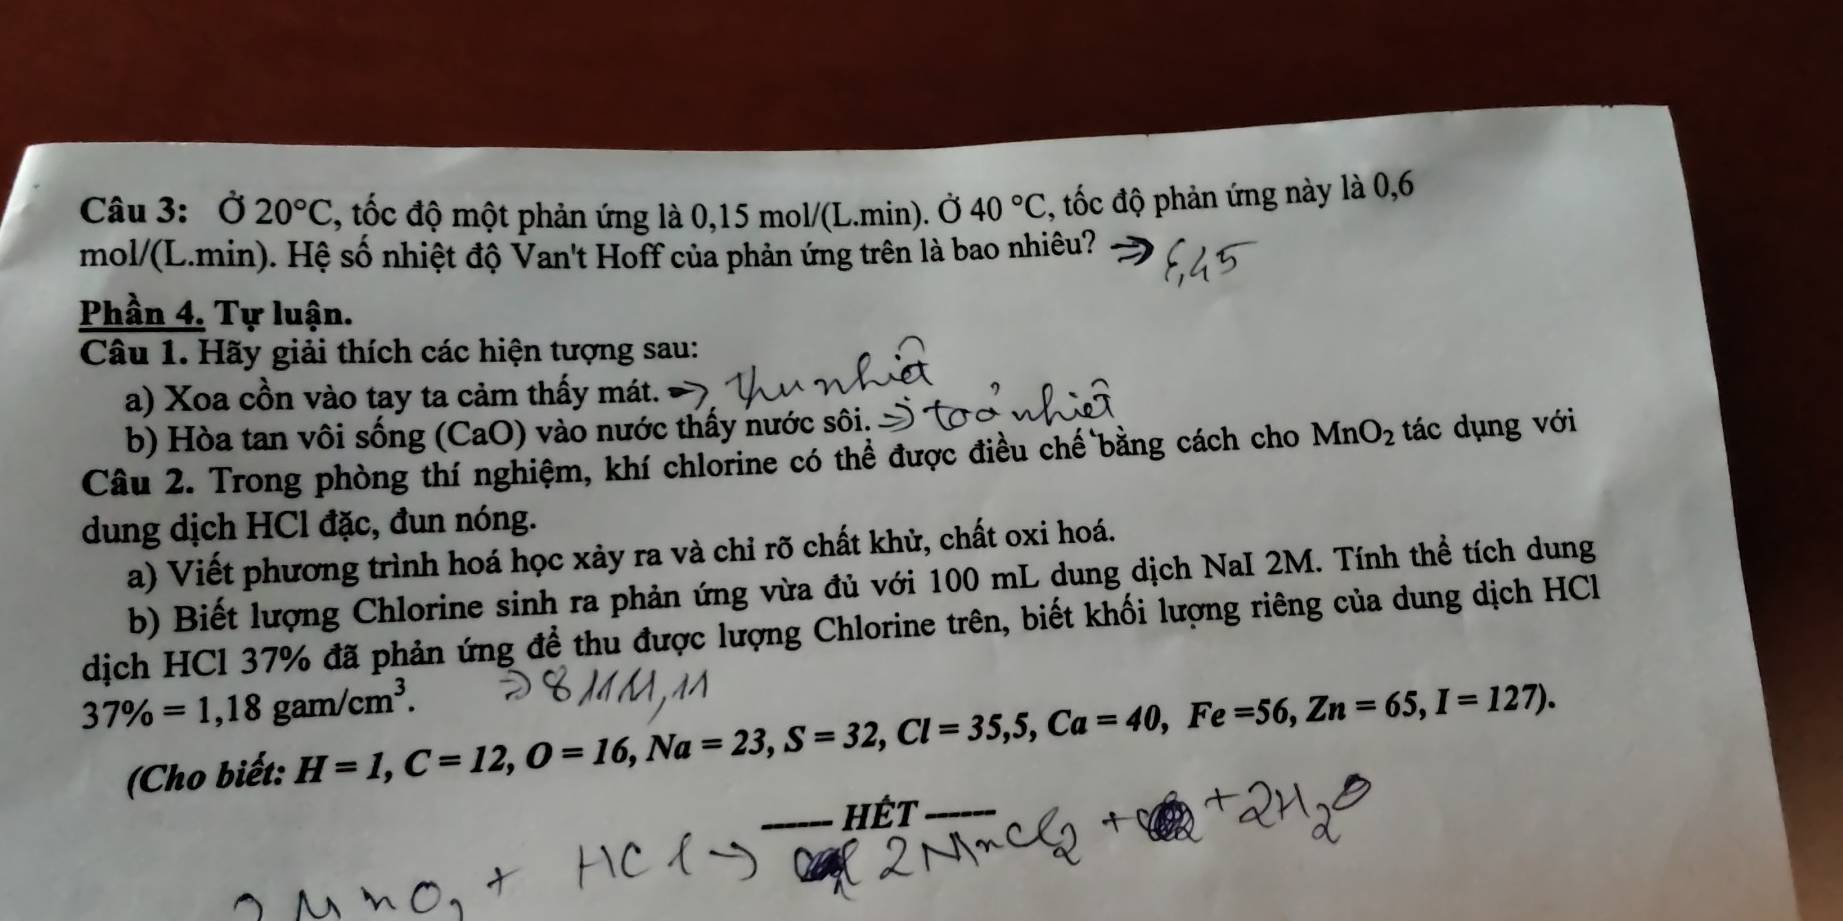 Câu 3: Ở 20°C, tốc độ một phản ứng là 0,15 mol/(L.min). Ở 40 °C, tốc độ phản ứng này là 0,6
mol/(L.min). Hệ số nhiệt độ Van't Hoff của phản ứng trên là bao nhiêu? ⇒
Phần 4. Tự luận.
Câu 1. Hãy giải thích các hiện tượng sau:
a) Xoa cồn vào tay ta cảm thấy mát. ⇒ thu nhiệt
b) Hòa tan vôi sống (CaO) vào nước thấy nước sôi. ⇒ toả nhiệt
Câu 2. Trong phòng thí nghiệm, khí chlorine có thể được điều chế bằng cách cho MnO₂ tác dụng với
dung dịch HCl đặc, đun nóng.
a) Viết phương trình hoá học xảy ra và chỉ rõ chất khử, chất oxi hoá.
b) Biết lượng Chlorine sinh ra phản ứng vừa đủ với 100 mL dung dịch NaI 2M. Tính thể tích dung
dịch HCl 37% đã phản ứng để thu được lượng Chlorine trên, biết khối lượng riêng của dung dịch HCl
37% = 1,18 gam/cm³. ⇒ 8111,11
(Cho biết: H = 1, C = 12, O = 16, Na = 23, S = 32, Cl = 35,5, Ca = 40, Fe =56, Zn = 65, I = 127).
------ HẾT ------
2MnO₂ + HCl → 2MnCl₂ + + 2H₂O